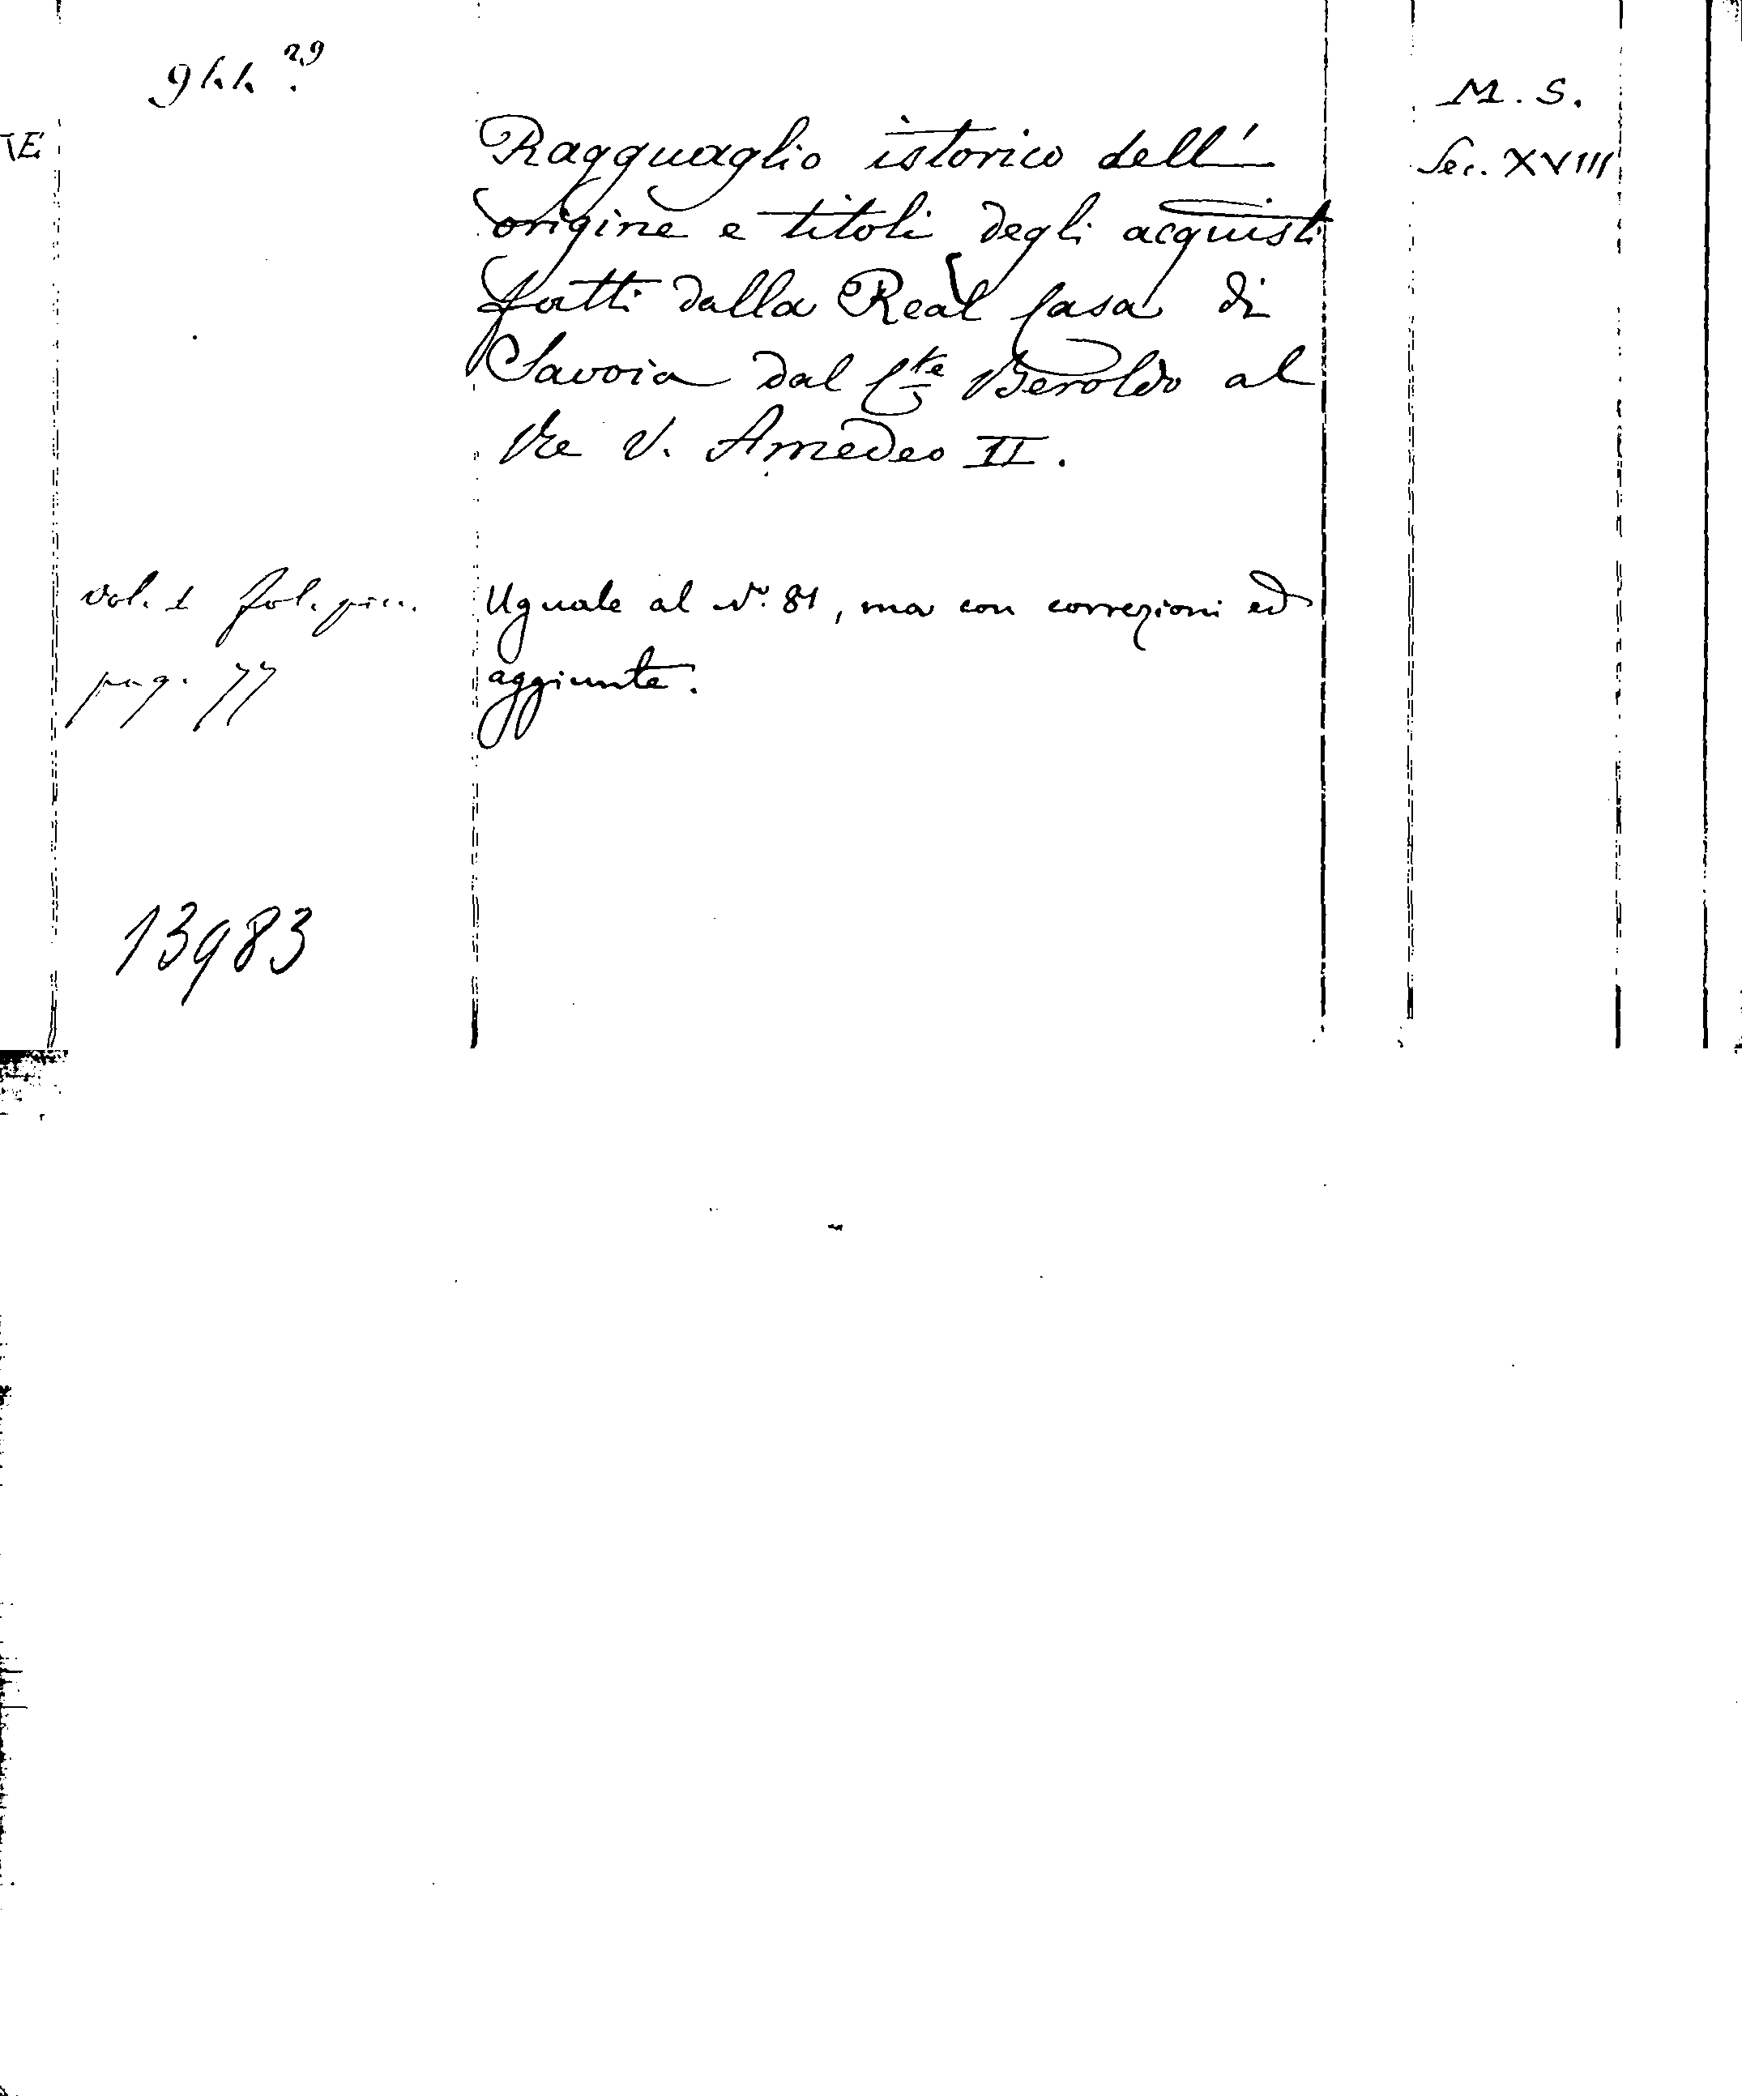 M. S.
Ragguaglio istorico dell'
Sec. XVIII
origine e titoli degli acquisti
fatti dalla Real Casa di
Savoia dal Cte Beroldo al
Re V. Amedeo II.
vol. 1 fol. picc.
Uguale al No. 81, ma con correzioni ed
pag. 77
aggiunte.
13983